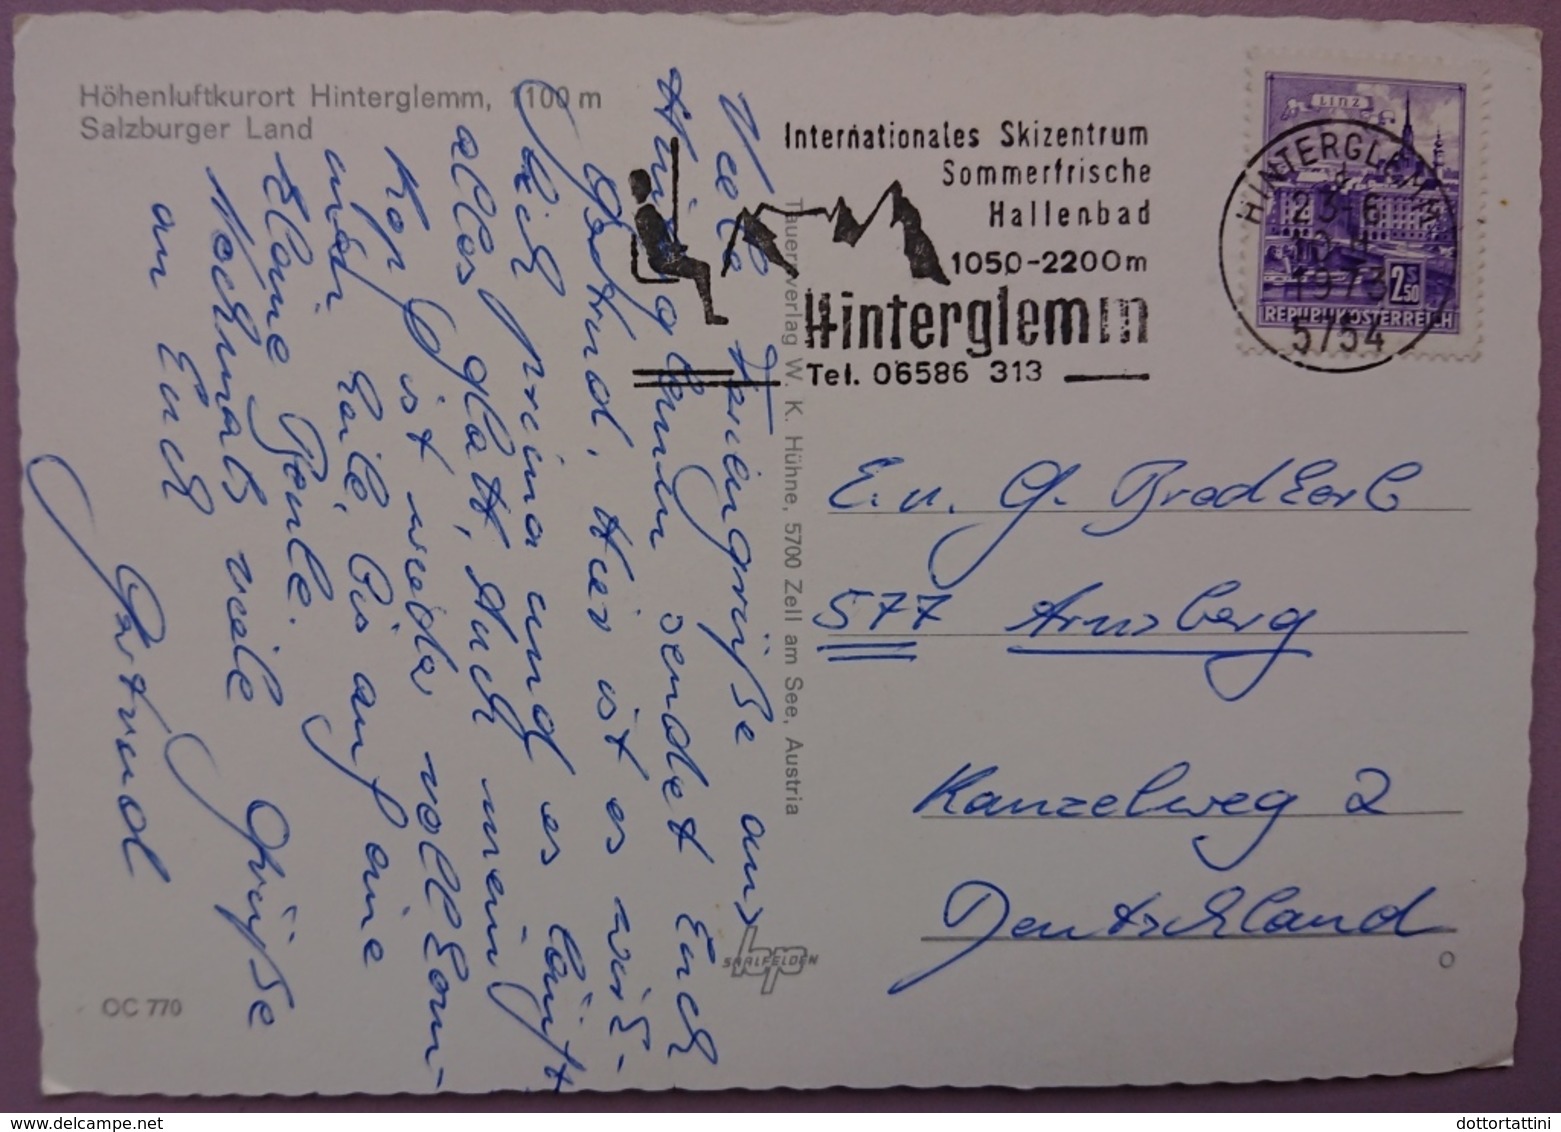 Höhenluftkurort Hinterglemm, 1100 m
Salzburger Land
Internationales Skizentrum
Sommerfrische
Hallenbad
1050-2200m
Hinterglemm
Tel. 06586 313
LINZ
2 S 50
REPUBLIK ÖSTERREICH
HINTERGLEMM
1973
5754
Viele Feriengrüße aus
Hinterglemm sendet Euch
Gertrud. Hier ist es wirk-
lich prima und es läuft
alles glatt. Auch mein
Kopf ist wieder vollkom-
men heile, bis auf eine
kleine Beule.
Nochmals viele Grüße
an Euch
Gertrud
Tauernverlag W. K. Hühne, 5700 Zell am See, Austria
SAALFELDEN
E. u. G.
577 Arnsberg
Kanzelweg 2
Deutschland
OC 770
dottortattini